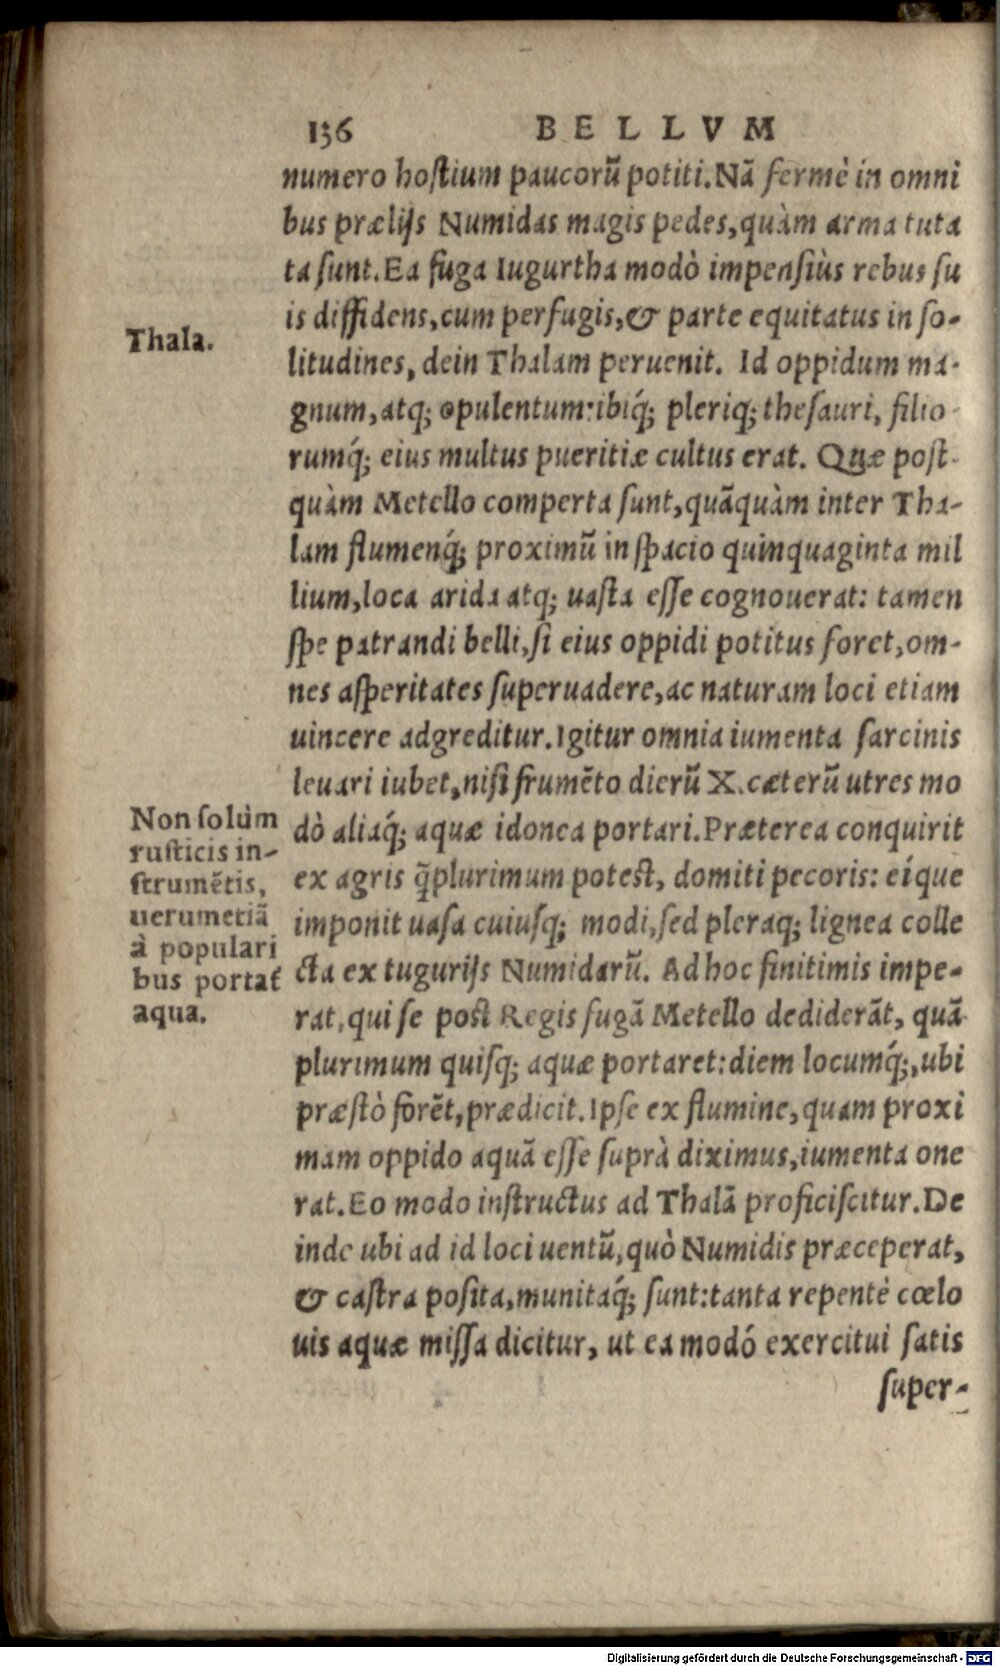 136 BELLVM
numero hostium paucorũ potiti. Nã fermè in omni
bus prælijs Numidas magis pedes, quàm arma tuta
ta sunt. Ea fuga Iugurtha modò impensiùs rebus su
is diffidens, cum perfugis, & parte equitatus in so-
Thala.
litudines, dein Thalam peruenit. Id oppidum ma-
gnum, atq; opulentum: ibiq́; pleriq; thesauri, filio-
rumq́; eius multus pueritiæ cultus erat. Quæ post-
quàm Metello comperta sunt, quãquàm inter Tha-
lam flumenq́; proximũ in spacio quinquaginta mil
lium, loca arida atq; uasta esse cognouerat: tamen
spe patrandi belli, si eius oppidi potitus foret, om-
nes asperitates superuadere, ac naturam loci etiam
uincere adgreditur. Igitur omnia iumenta sarcinis
leuari iubet, nisi frumẽto dierũ X. cæterũ utres mo
dò aliaq́; aquæ idonea portari. Præterea conquirit
ex agris q̃plurimum potest, domiti pecoris: eíque
imponit uasa cuiusq; modi, sed pleraq; lignea colle
cta ex tugurijs Numidarũ. Ad hoc finitimis impe-
rat, qui se post Regis fugã Metello dediderãt, quã
plurimum quisq; aquæ portaret: diem locumq́;, ubi
præstò forẽt, prædicit. Ipse ex flumine, quam proxi
mam oppido aquã esse suprà diximus, iumenta one
rat. Eo modo instructus ad Thalã proficiscitur. De
inde ubi ad id loci uentũ, quò Numidis præceperat,
& castra posita, munitaq́; sunt: tanta repentè cœlo
uis aquæ missa dicitur, ut ea modó exercitui satis
super-
Non solùm
rusticis in-
strumẽtis,
uerumetiã
à populari
bus portat́
aqua.
Digitalisierung gefördert durch die Deutsche Forschungsgemeinschaft - DFG